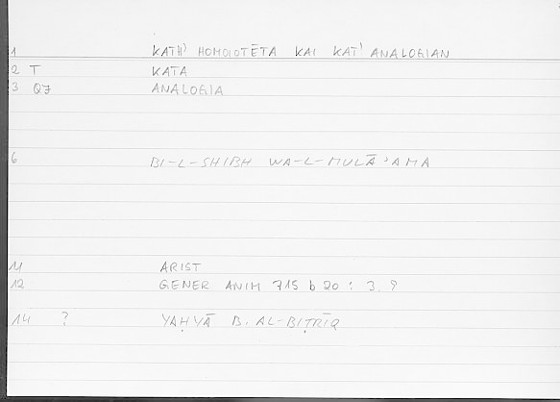 1 KATH' HOMOIOTĒTA KAI KAT' ANALOGIAN
2 T KATA
3 QJ ANALOGIA
6 BI-L-SHIBH WA-L-MULĀ'AMA
11 ARIST
12 GENER ANIM 715 b 20 : 3. 9
14 ? YAḤYĀ B. AL-BIṬRĪQ